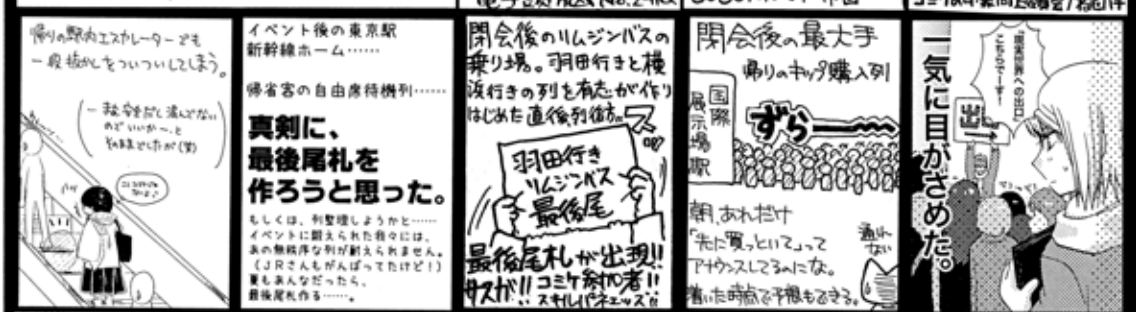 帰りの駅内エスカレーターでも
一段抜かしをついついしてしまう。
イベント後の東京駅
新幹線ホーム……
帰省客の自由席待機列……
真剣に、
最後尾札を
作ろうと思った。
もしくは、列整理しようかと……
イベントに鍛えられた我々には、
あの無秩序な列が耐えられません。
(JRさんもがんばってたけど!)
夏もあんなだったら、
最後尾札作る……。
閉会後のリムジンバスの
乗り場。羽田行きと横
浜行きの列を有志が作り
はじめた直後列後方… ス
羽田行き
リムジンバス
最後尾
最後尾札が出現!!
サスガ!!コミケ参加者!!
スキルパネェッス!!
閉会後の最大手
帰りのキップ購入列
国際
展示場駅
ずらーーー
朝、あれだけ
「先に買っといて」って
アナウンスしてるのにな。
着いた時点で予想もできる。
通れ
ない
「現実世界への出口
こちらでーす!」
出
一気に目がざめた。